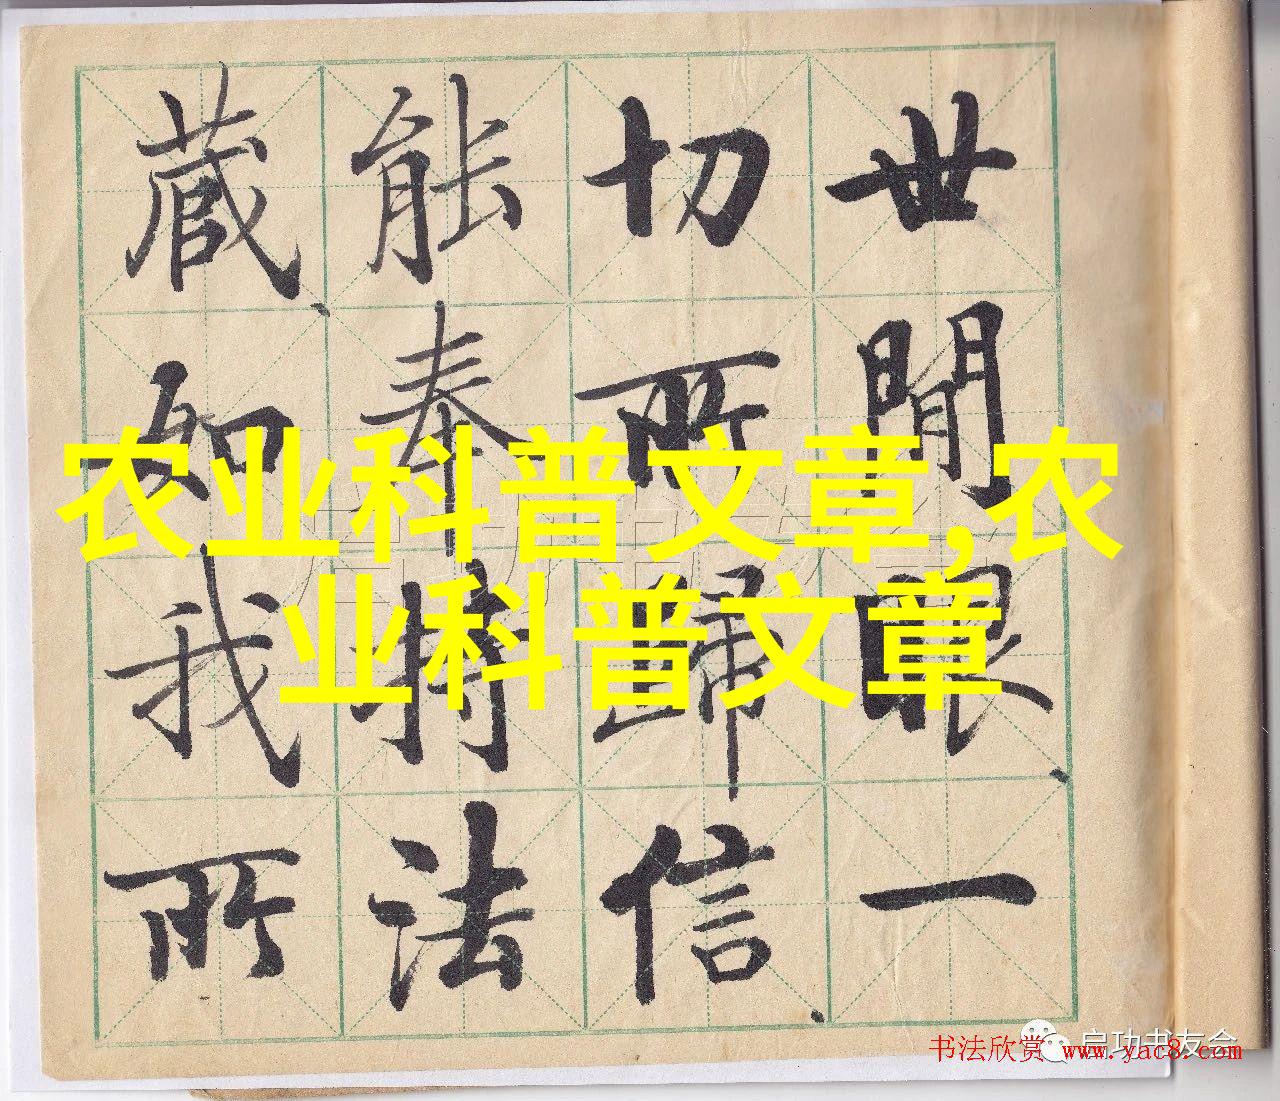 世間眼一
切所歸信
能奉持法
藏如我所
农业科普文章,农
业科普文章
启功书友会
书法欣赏 www.yac8.com